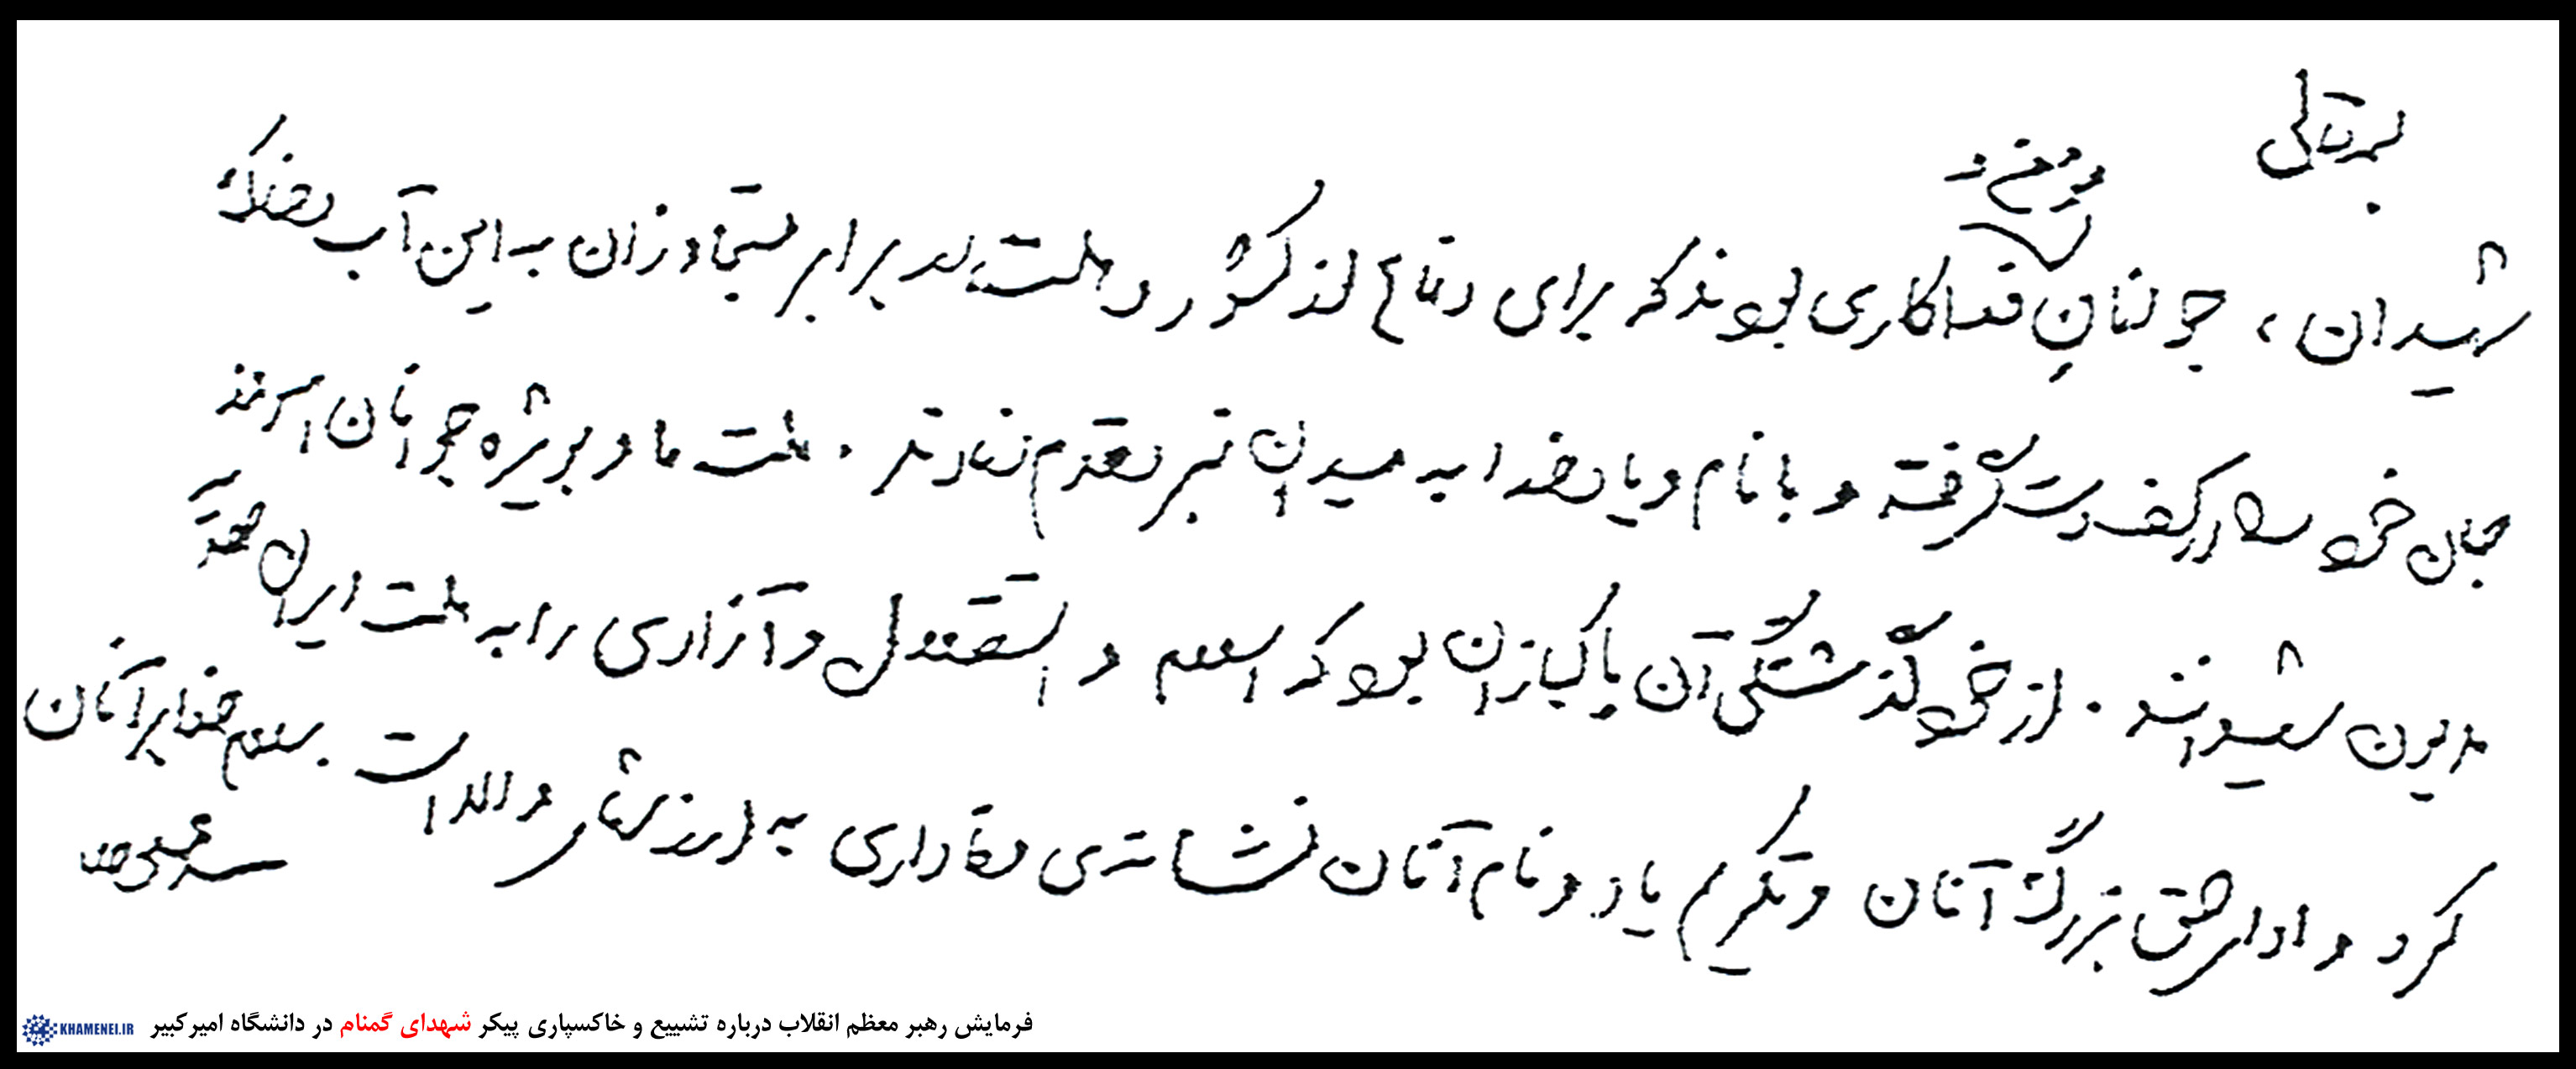 بسمه‌تعالی
شهیدان، جوانانِ فداکاری بودند که برای دفاع از کشور و ملت، در برابر متجاوزان به این آب و خاک
مومن و
جان خود را در کف دست گرفته و با نام و یاد خدا به میدان نبرد قدم نهادند. ملت ما و بویژه جوانان امروز
مدیون شهیدانند. از خودگذشتگی آن پاکبازان بود که اسلام و استقلال و آزادی را به ملت ایران هدیه
کرد و ادای حق بزرگ آنان و تکریم یاد و نام آنان نشانه‌ی وفاداری به ارزشهای والاست. سلام خدا بر آنان
سید علی خامنه‌ای
فرمایش رهبر معظم انقلاب درباره تشییع و خاکسپاری پیکر شهدای گمنام در دانشگاه امیرکبیر
KHAMENEI.IR